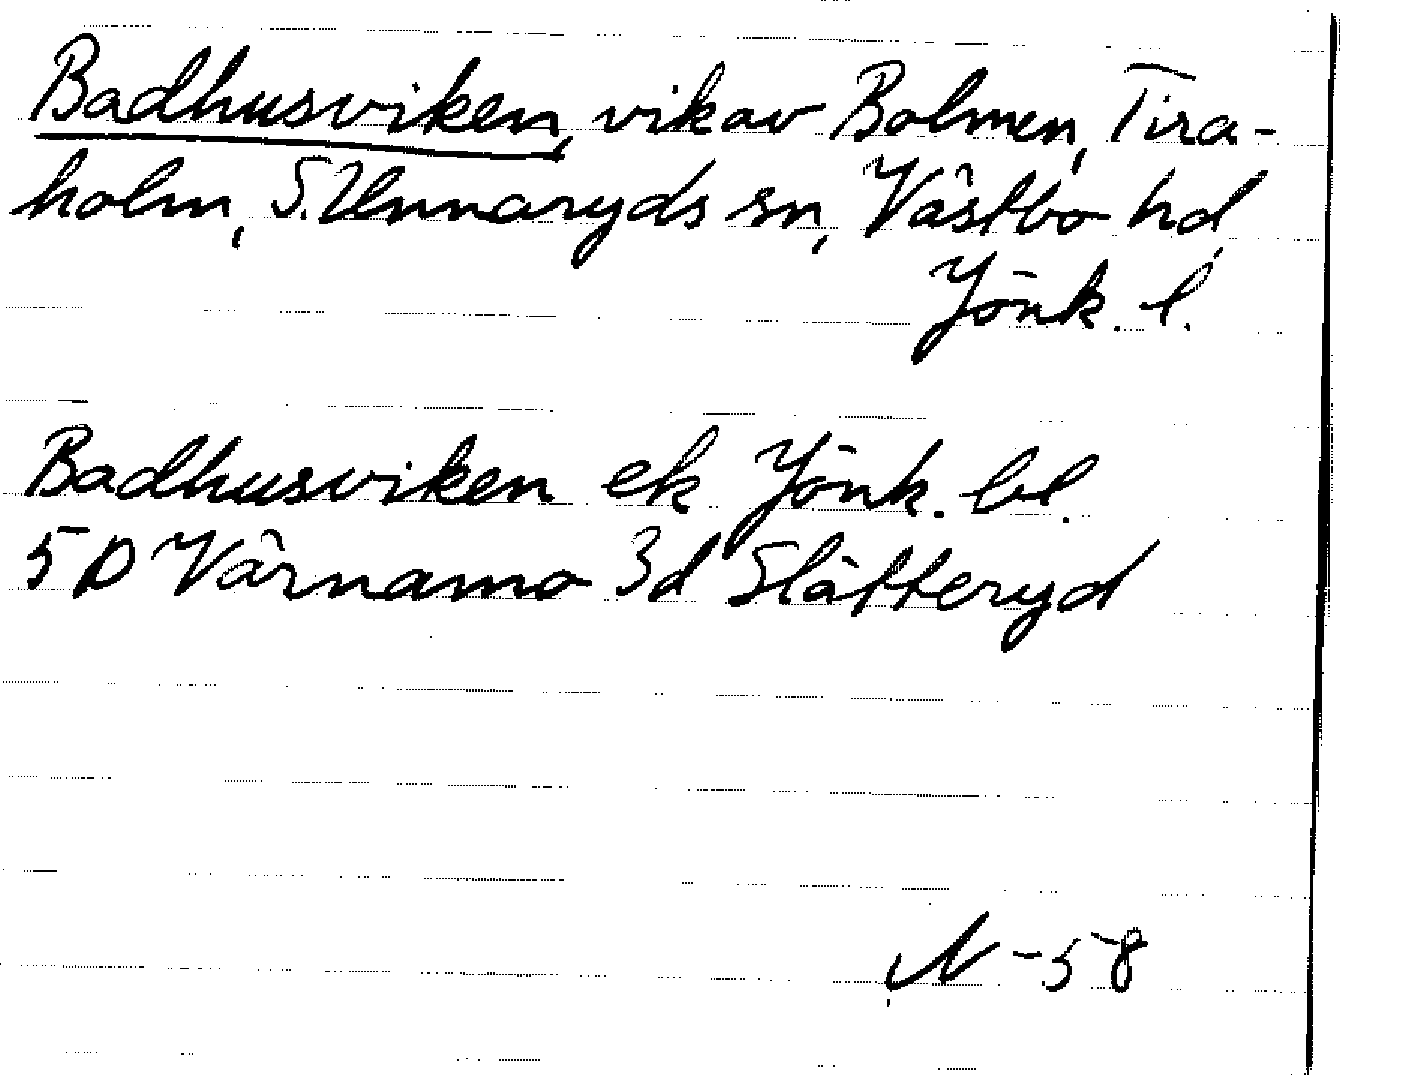 Badhusviken, vik av Bolmen, Tira-
holm, S. Unnaryds sn, Västbo hd,
Jönk. l.
Badhusviken ek Jönk. bl.
5 D Värnamo 3d Slätteryd
N -58